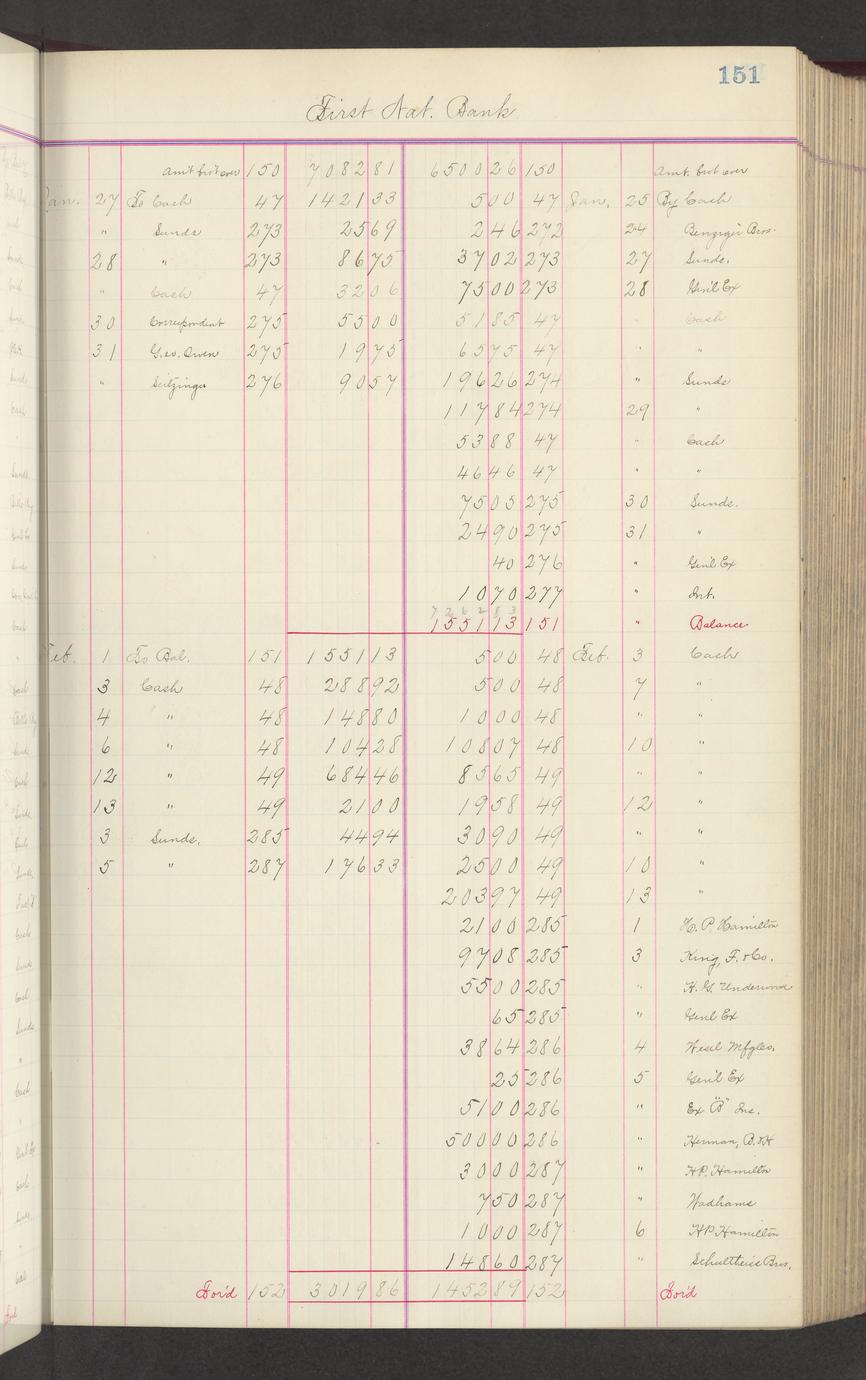 151
First Nat. Bank
Am't brot over 150 7082 81 6500 26 150 Amt. brot over
Jan. 27 To Cash 47 1421 33 5 00 47 Jan. 25 By Cash
" Sunds 273 25 69 2 46 272 24 Benziger Bros.
28 " 273 86 75 37 02 273 27 Sunds.
" Cash 47 32 06 75 00 273 28 Gen'l Ex
30 Correspondent 275 55 00 51 85 47 " Cash
31 Geo. Owen 275 19 75 65 75 47 " "
" Seitzinger 276 90 57 196 26 274 " Sunds
117 84 274 29 "
53 88 47 " Cash
46 46 47 " "
75 05 275 30 Sunds.
24 90 275 31 "
40 276 " Gen'l Ex
10 70 277 " Int.
7262 83
1551 13 151 " Balance
Feb. 1 To Bal. 151 1551 13 5 00 48 Feb. 3 Cash
3 Cash 48 288 92 5 00 48 7 "
4 " 48 148 80 10 00 48 " "
6 " 48 104 28 108 07 48 10 "
12 " 49 684 46 85 65 49 " "
13 " 49 21 00 19 58 49 12 "
3 Sunds. 285 44 94 30 90 49 " "
5 " 287 176 33 25 00 49 10 "
203 97 49 13 "
21 00 285 1 H. P. Hamilton
97 08 285 3 King, F. & Co.
55 00 285 " H. G. Underwood
65 285 " Genl Ex
38 64 286 4 Wesel Mfg Co.
25 286 5 Gen'l Ex
51 00 286 " Ex "B" Ins.
500 00 286 " Herman, B. & H
30 00 287 " H.P. Hamilton
7 50 287 " Wadhams
10 00 287 6 H.P. Hamilton
148 60 287 " Schultheiss Bros.
For'd 152 3019 86 1452 89 152 For'd